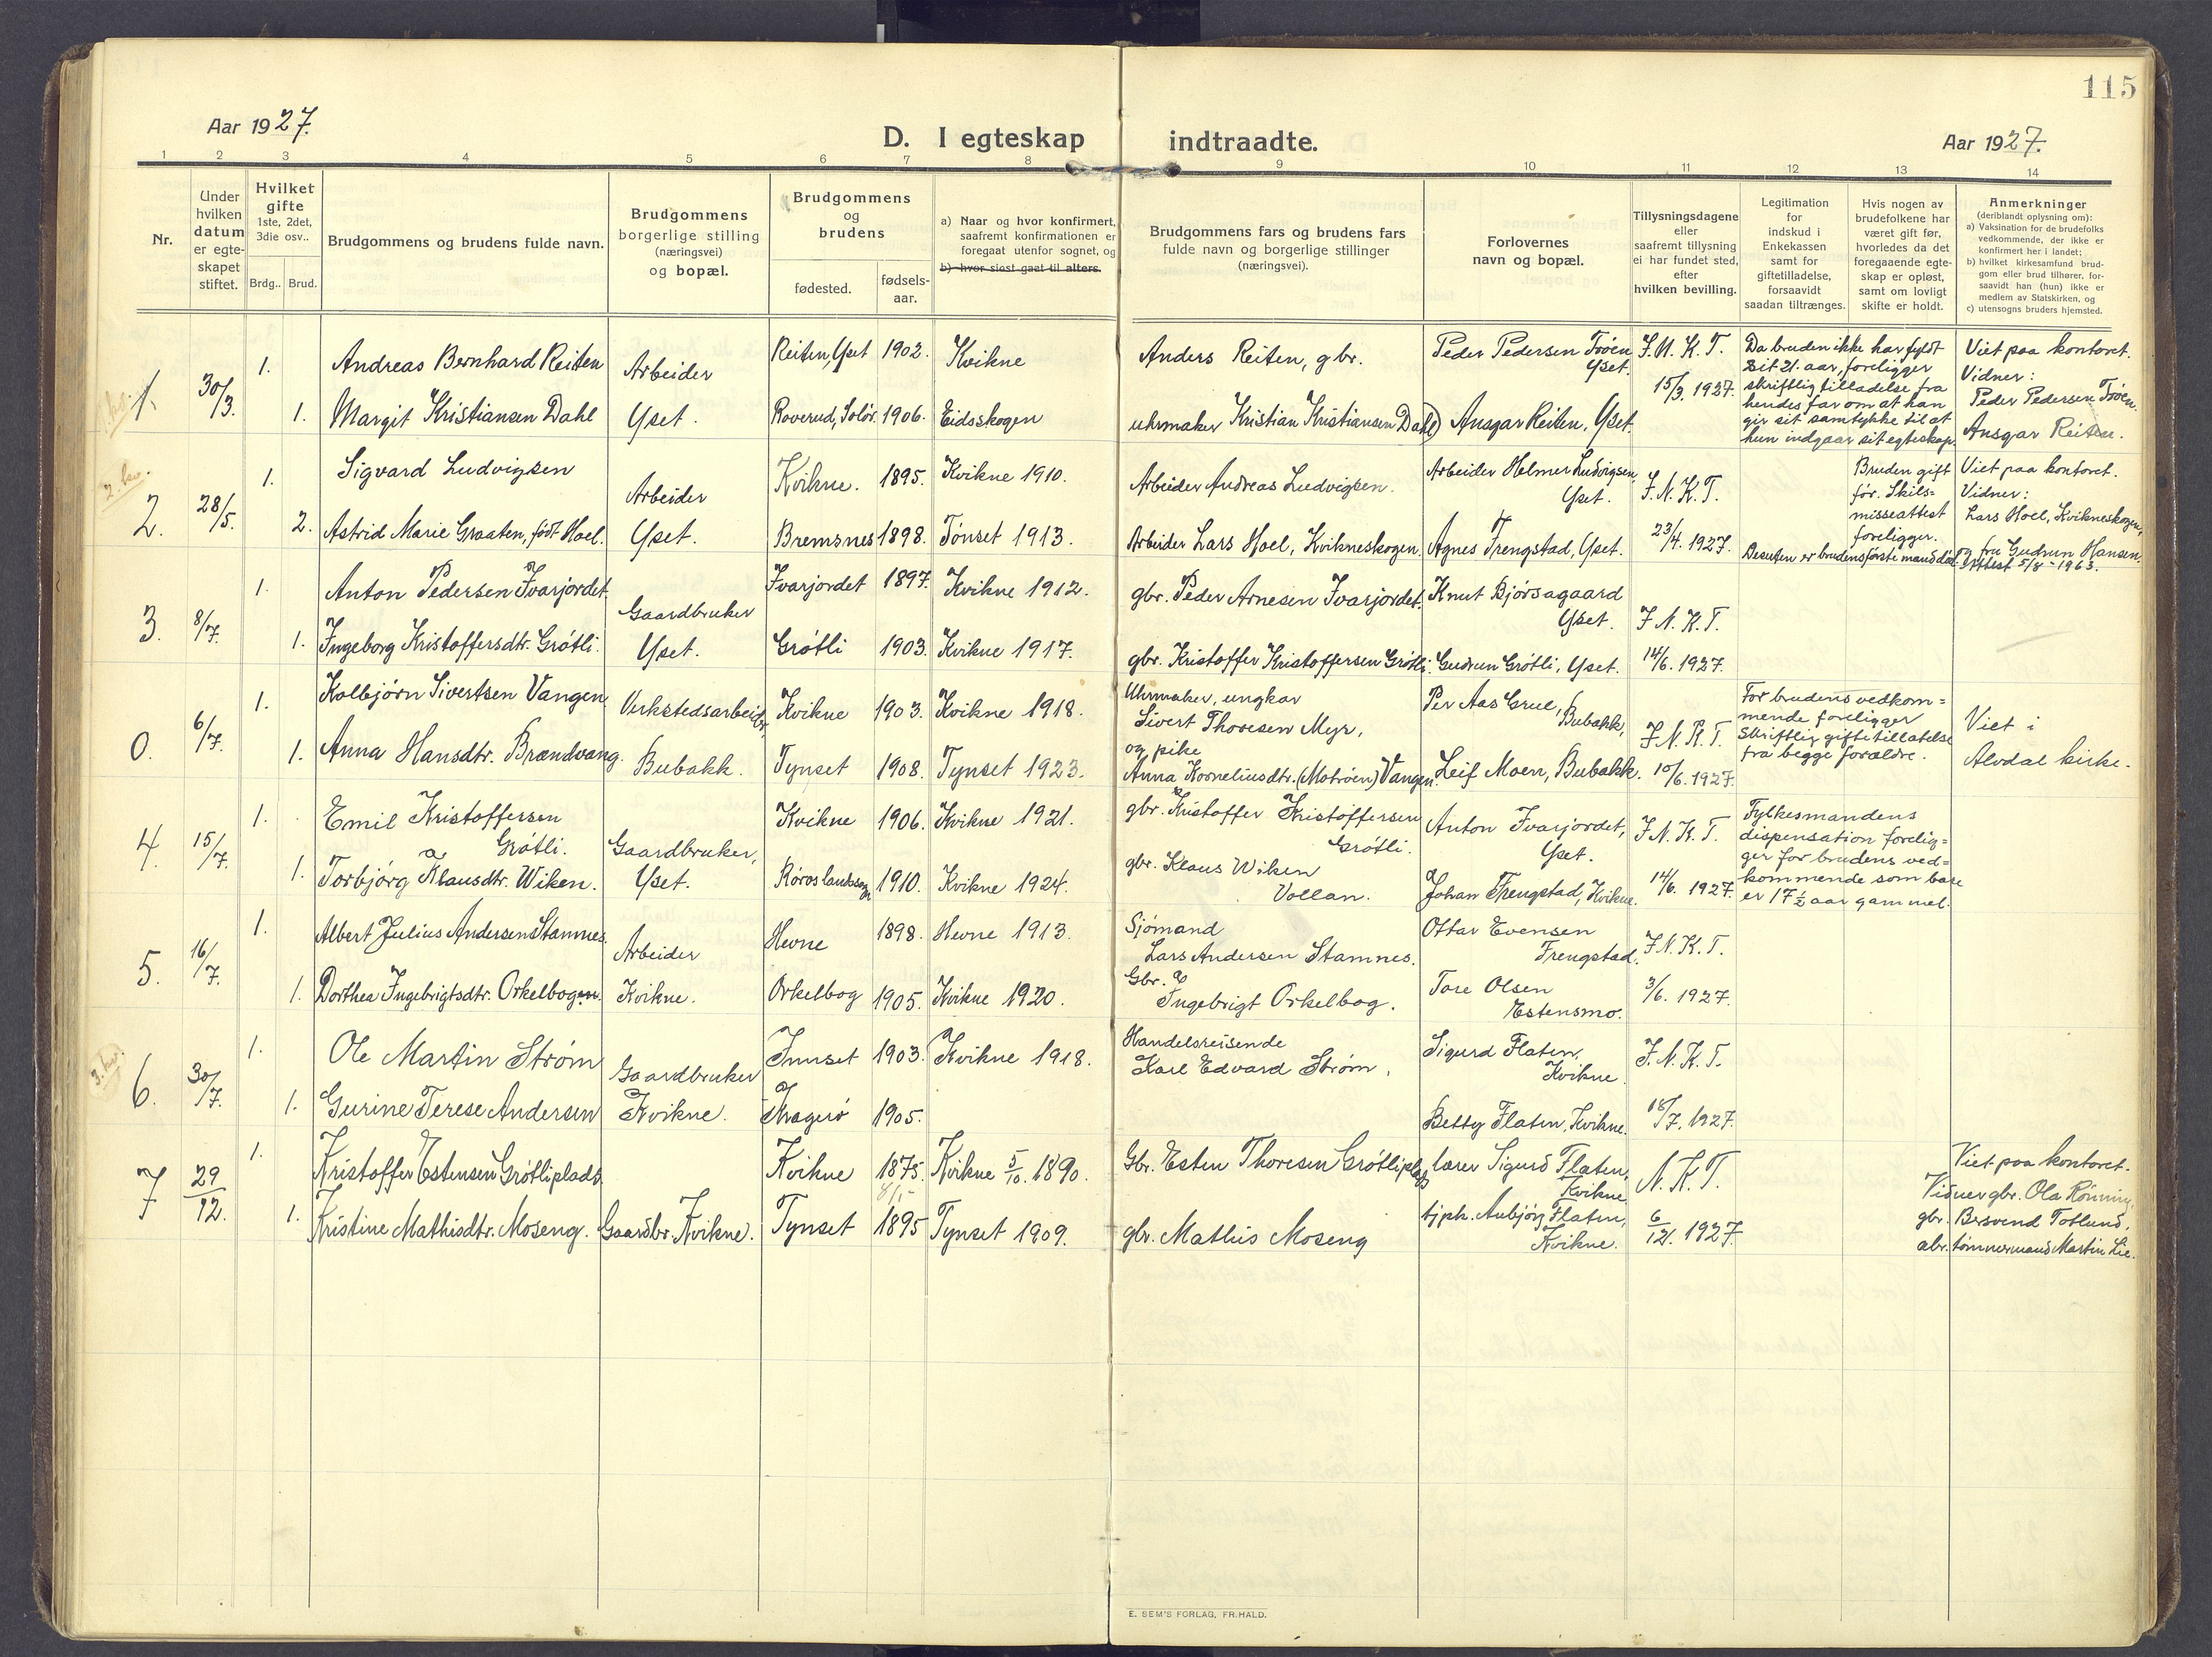 115
Aar 1927.
D. I egteskap indtraadte.
Aar 1927.
1 2 3 4 5 6 7 8 9 10 11 12 13 14
Nr.
Under hvilken datum er egte-skapet stiftet.
Hvilket gifte
1ste, 2det, 3die osv..
Brdg.. Brud.
Brudgommens og brudens fulde navn.
Brudgommens borgerlige stilling (næringsvei) og bopæl.
Brudgommens og brudens
fødested.
fødsels-aar.
a) Naar og hvor konfirmert, saafremt konfirmationen er foregaat utenfor sognet, og
b) hvor sidst gaat til alters.
Brudgommens fars og brudens fars fulde navn og borgerlige stillinger (næringsvei).
Forlovernes navn og bopæl.
Tillysningsdagene eller saafremt tillysning ei har fundet sted, efter hvilken bevilling.
Legitimation for indskud i Enkekassen samt for giftetilladelse, forsaavidt saadan tiltrænges.
Hvis nogen av brudefolkene har været gift før, hvorledes da det foregaaende egte-skap er opløst, samt om lovligt skifte er holdt.
Anmerkninger
(deriblandt oplysning om):
a) Vaksination for de brudefolks vedkommende, der ikke er konfirmert her i landet;
b) hvilket kirkesamfund brud-gom eller brud tilhører, for-saavidt han (hun) ikke er medlem av Statskirken, og
c) utensogns bruders hjemsted.
1. 30/3.
1. Andreas Bernhard Reiten
Arbeider
Reiten, Yset 1902. Kvikne
Anders Reiten, gbr.
Peder Pedersen Trøen Yset.
F. N. K. T.
1. Margit Kristiansen Dahl
Yset.
Roverud, Solør. 1906. Eidsskogen
uhrmaker Kristian Kristiansen Dahl
Ansgar Reiten, Yset.
15/3. 1927.
Da bruden ikke har fyldt
sit 21. aar, foreligger
skriftlig tilladelse fra
hendes far om at han
gir sit samtykke til at
hun indgaar sit egteskap.
Viet paa kontoret.
Vidner:
Peder Pedersen Trøen.
Ansgar Reiten.
2. kv.
2. 28/5.
1. Sigvard Ludvigsen
Arbeider
Kvikne. 1895. Kvikne 1910.
Arbeider Andreas Ludvigsen.
Arbeider Helmer Ludvigsen, Yset.
F. N. K. T.
2. Astrid Marie Graaten, født Hoel.
Yset.
Bremsnes 1898. Tønset 1913.
Arbeider Lars Hoel, Kvikneskogen.
Agnes Frengstad, Yset.
23/4. 1927.
Bruden gift
før. Skils=
misseattest
foreligger.
Desuten er brudens første mand død.
Viet paa kontoret.
Vidner:
Lars Hoel, Kvikneskogen,
og fru Gudrun Hansen.
Attest 5/8 - 1963.
3. 8/7.
1. Anton Pedersen Ivarjordet.
Gaardbruker
Ivarjordet 1897. Kvikne 1912.
gbr. Peder Arnesen Ivarjordet.
Knut Bjørsagaard Yset.
F. N. K. T.
1. Ingeborg Kristoffersdtr. Grøtli.
Yset.
Grøtli 1903. Kvikne 1917.
gbr. Kristoffer Kristoffersen Grøtli.
Gudrun Grøtli, Yset.
14/6. 1927.
0. 6/7.
1. Kolbjørn Sivertsen Vangen
Verkstedsarbeider,
Kvikne 1903. Kvikne 1918.
Uhrmaker, ungkar
Sivert Thoresen Myr,
Per Aas Grue, Bubakk,
F. N. K. T.
1. Anna Hansdtr. Brændvang.
Bubakk.
Tynset 1908. Tynset 1923.
og pike
Anna Korneliusdtr. (Motrøen) Vangen.
Leif Moen, Bubakk.
10/6. 1927.
For brudens vedkom=
mende foreligger
skriftlig giftetillatelse
fra begge forældre.
Viet i
Alvdal kirke.
4. 15/7.
1. Emil Kristoffersen
Grøtli.
Gaardbruker,
Kvikne 1906. Kvikne 1921.
gbr. Kristoffer Kristoffersen
Grøtli.
Anton Ivarjordet,
Yset.
F. N. K. T.
1. Torbjørg Klausdtr. Wiken.
Yset.
Røros landsogn 1910. Kvikne 1924.
gbr. Klaus Wiken
Vollan.
Johan Frengstad, Kvikne.
14/6. 1927.
Fylkesmandens
dispensation forelig=
ger for brudens ved=
kommende som bare
er 17 ½ aar gammel.
5. 16/7.
1. Albert Julius Andersen Stamnes.
Arbeider
Hevne 1898. Hevne 1913.
Sjømand
Lars Andersen Stamnes.
Ottar Evensen
Frengstad.
F. N. K. T.
1. Dorthea Ingebrigtsdtr. Orkelbogen.
Kvikne.
Orkelbog 1905. Kvikne 1920.
Gbr.
Ingebrigt Orkelbog.
Tore Olsen
Estensmo.
3/6. 1927.
3. kv.
6. 30/7.
1. Ole Martin Strøm
Gaardbruker
Innset 1903. Kvikne 1918.
Handelsreisende
Karl Edvard Strøm,
Sigurd Flaten,
Kvikne.
F. N. K. T.
1. Gurine Terese Andersen
Kvikne.
Kragerø 1905.
Betty Flaten, Kvikne.
18/7. 1927.
7 29/12.
1. Kristoffer Estensen Grøtliplads
Kvikne 1875. Kvikne 5/10. 1890.
Gbr. Esten Thoresen Grøtliplads
lærer Sigurd Flaten,
Kvikne
N. K. T.
1. Kristine Mathisdtr. Moseng.
Gaardbr. Kvikne.
Tynset 1895 Tynset 1909.
gbr. Mathis Moseng
tjpk. Aubjørg Flaten,
Kvikne.
6/12. 1927.
Viet paa kontoret.
Vidner gbr. Ola Rønning,
gbr. Bersvend Totlund,
tømmermand Martin Lie.
E. SEM'S FORLAG, FR.HALD.